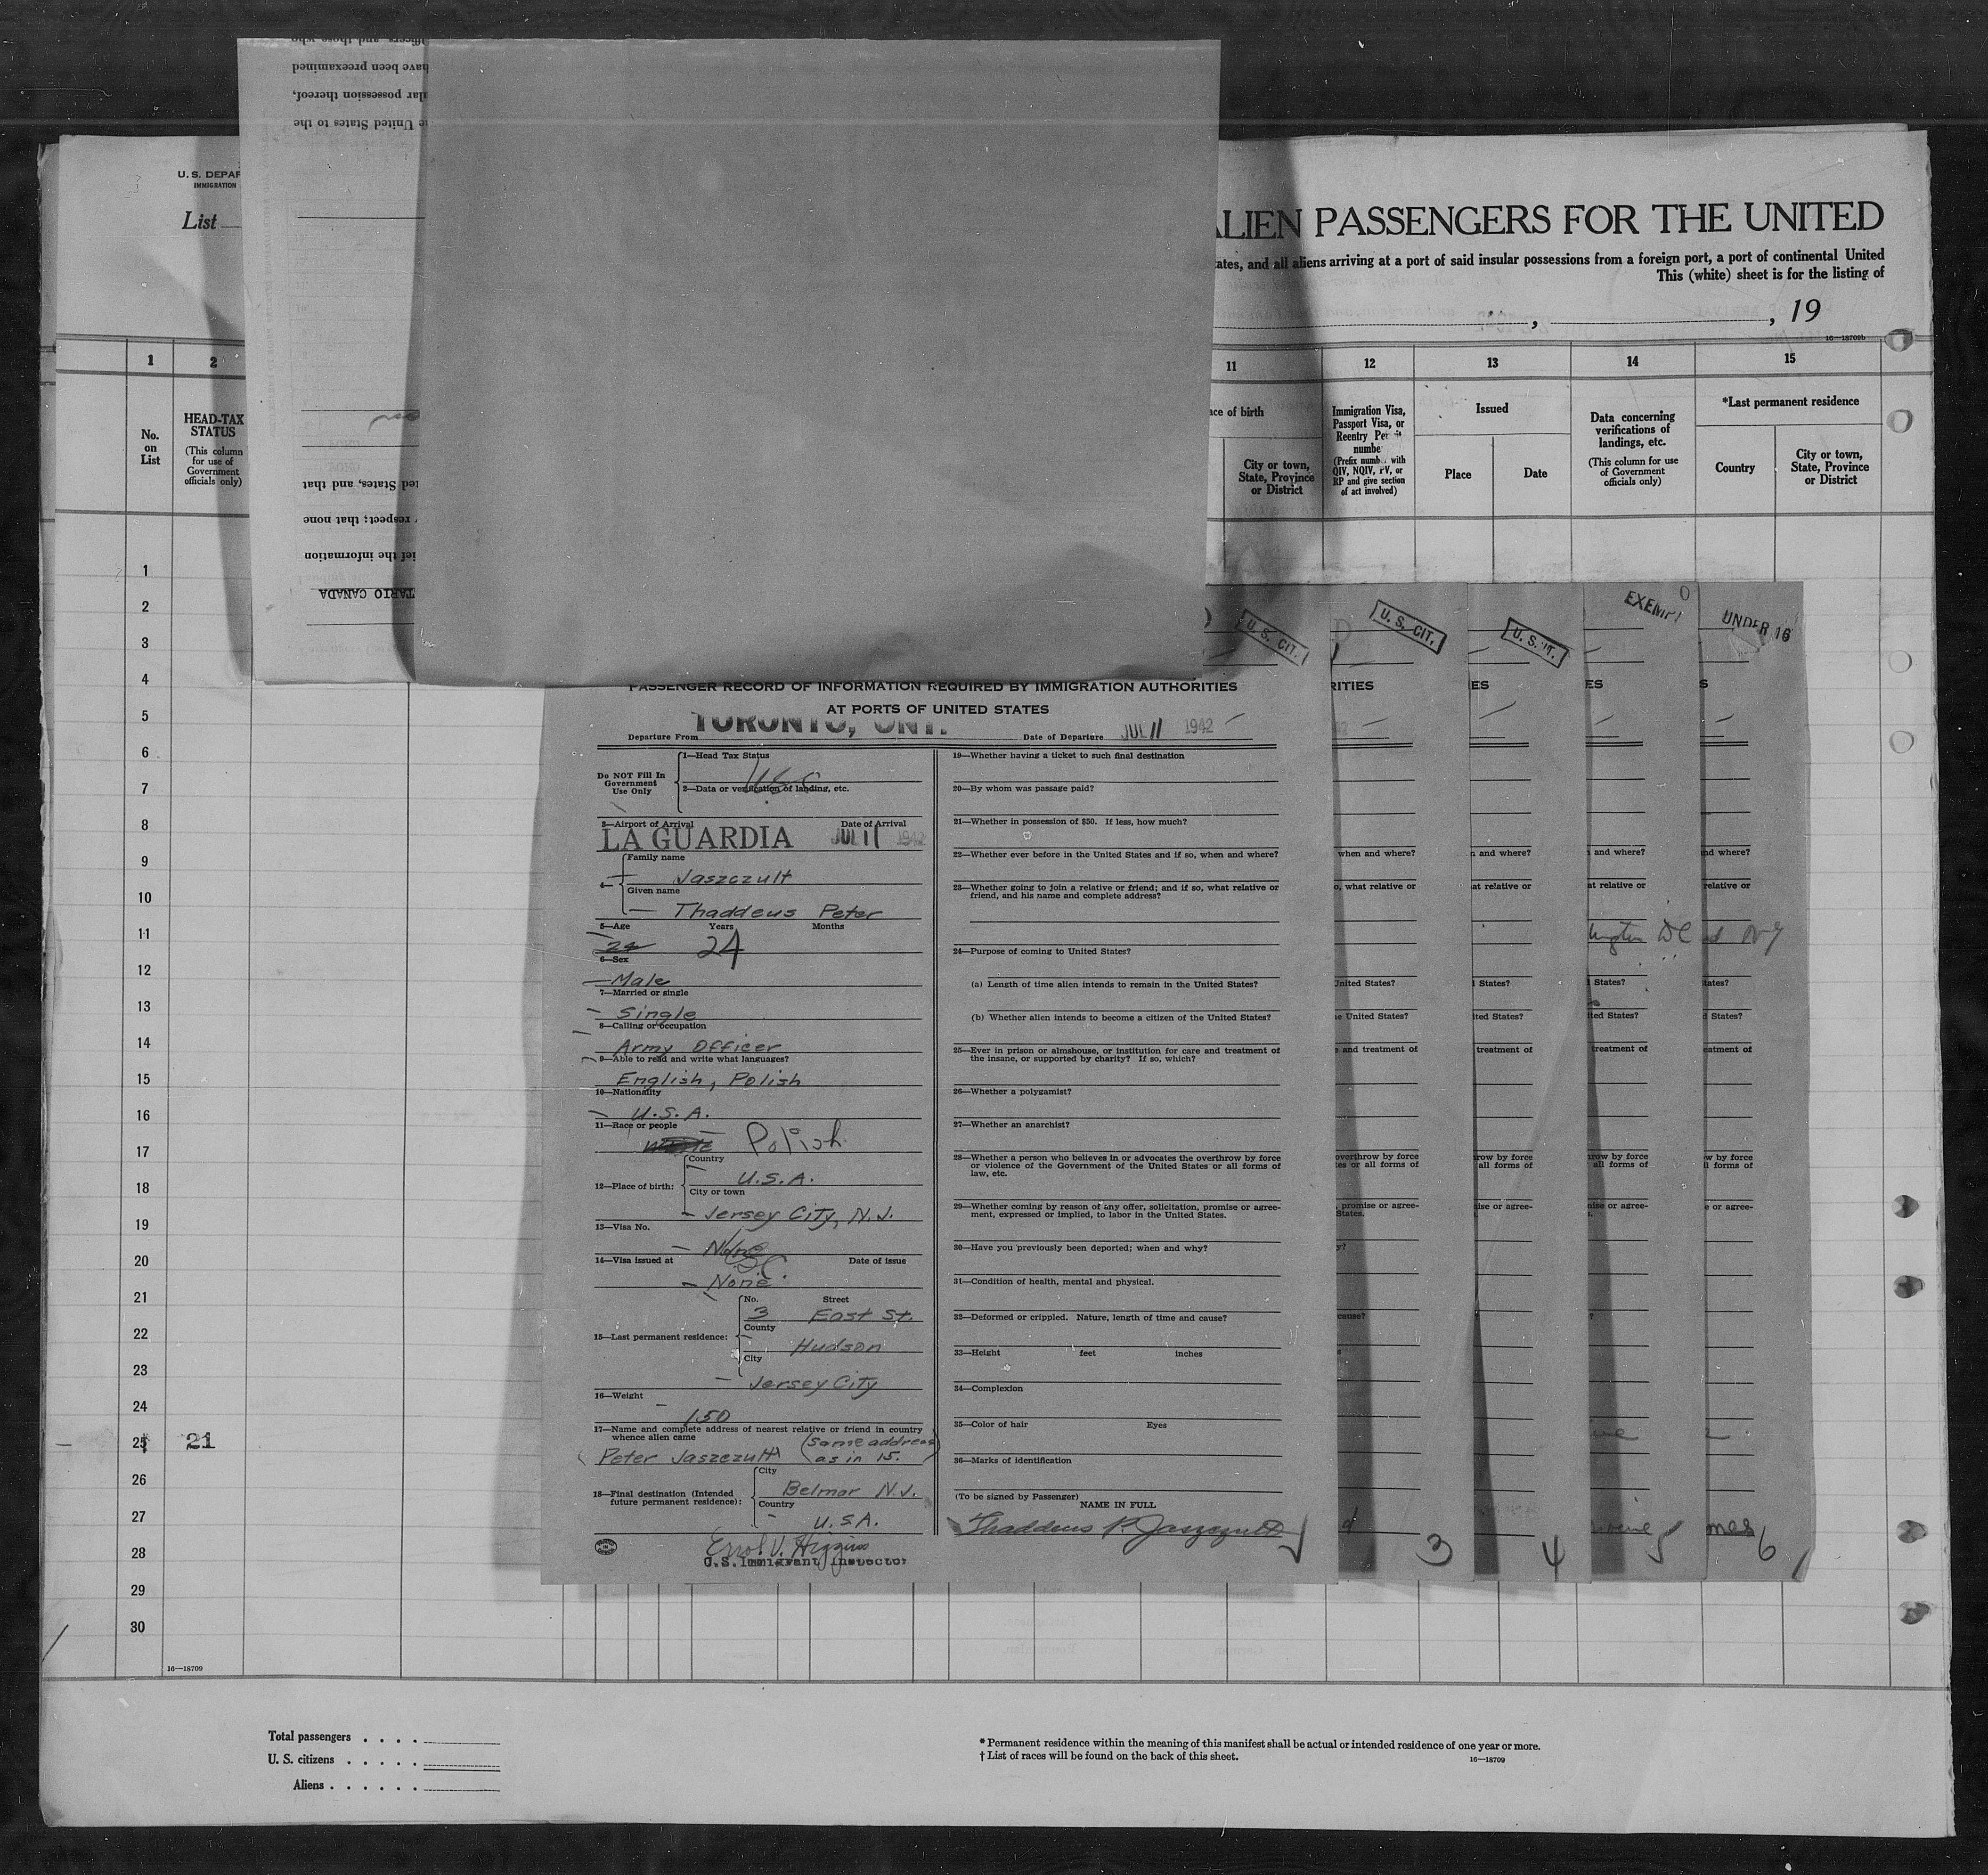 U. S. DEPAR
IMMIGRATION
List
ALIEN PASSENGERS FOR THE UNITED
ates, and all aliens arriving at a port of said insular possessions from a foreign port, a port of continental United
This (white) sheet is for the listing of
, , 19
16—18709b
Officers and those who
have been preexamined
lar possession thereof,
e United States to the
ted States, and that
respect; that none
ief the information
TARIO CANADA
1 2 11 12 13 14 15
No. on List
HEAD-TAX STATUS
(This column for use of Government officials only)
ace of birth
City or town, State, Province or District
Immigration Visa, Passport Visa, or Reentry Permit number
(Prefix number with QIV, NQIV, PV, or RP and give section of act involved)
Issued
Place
Date
Data concerning verifications of landings, etc.
(This column for use of Government officials only)
*Last permanent residence
Country
City or town, State, Province or District
1
2
3
4
5
6
7
8
9
10
11
12
13
14
15
16
17
18
19
20
21
22
23
24
25 21
26
27
28
29
30
16—18709
U. S. CIT.
U. S. CIT.
U. S. CIT.
EXEMPT
UNDER 16
PASSENGER RECORD OF INFORMATION REQUIRED BY IMMIGRATION AUTHORITIES
AT PORTS OF UNITED STATES
Departure From TORONTO, ONT. Date of Departure JUL 11 1942
Do NOT Fill In Government Use Only
1—Head Tax Status
USC
2—Data or verification of landing, etc.
3—Airport of Arrival Date of Arrival
LA GUARDIA JUL 11 1942
4—
Family name
Jaszczult
Given name
Thaddeus Peter
5—Age Years Months
24 24
6—Sex
Male
7—Married or single
Single
8—Calling or occupation
Army Officer
9—Able to read and write what languages?
English, Polish
10—Nationality
U.S.A.
11—Race or people
Polish
12—Place of birth:
Country
U.S.A.
City or town
Jersey City, N.J.
13—Visa No.
None
14—Visa issued at Date of issue
None
15—Last permanent residence:
No. Street
3 East St.
County
Hudson
City
Jersey City
16—Weight
150
17—Name and complete address of nearest relative or friend in country whence alien came
Peter Jaszczult (same address as in 15.)
18—Final destination (Intended future permanent residence):
City
Belmar N.J.
Country
U.S.A.
Errol V. Higgins
U.S. Immigrant Inspector
19—Whether having a ticket to such final destination
20—By whom was passage paid?
21—Whether in possession of $50. If less, how much?
22—Whether ever before in the United States and if so, when and where?
23—Whether going to join a relative or friend; and if so, what relative or friend, and his name and complete address?
24—Purpose of coming to United States?
(a) Length of time alien intends to remain in the United States?
(b) Whether alien intends to become a citizen of the United States?
25—Ever in prison or almshouse, or institution for care and treatment of the insane, or supported by charity? If so, which?
26—Whether a polygamist?
27—Whether an anarchist?
28—Whether a person who believes in or advocates the overthrow by force or violence of the Government of the United States or all forms of law, etc.
29—Whether coming by reason of any offer, solicitation, promise or agreement, expressed or implied, to labor in the United States.
30—Have you previously been deported; when and why?
31—Condition of health, mental and physical.
32—Deformed or crippled. Nature, length of time and cause?
33—Height feet inches
34—Complexion
35—Color of hair Eyes
36—Marks of identification
(To be signed by Passenger)
NAME IN FULL
Thaddeus P. Jaszczult
3
4
5
6
Total passengers . . . .
U. S. citizens . . . . .
Aliens . . . . . .
* Permanent residence within the meaning of this manifest shall be actual or intended residence of one year or more.
† List of races will be found on the back of this sheet.
16—18709